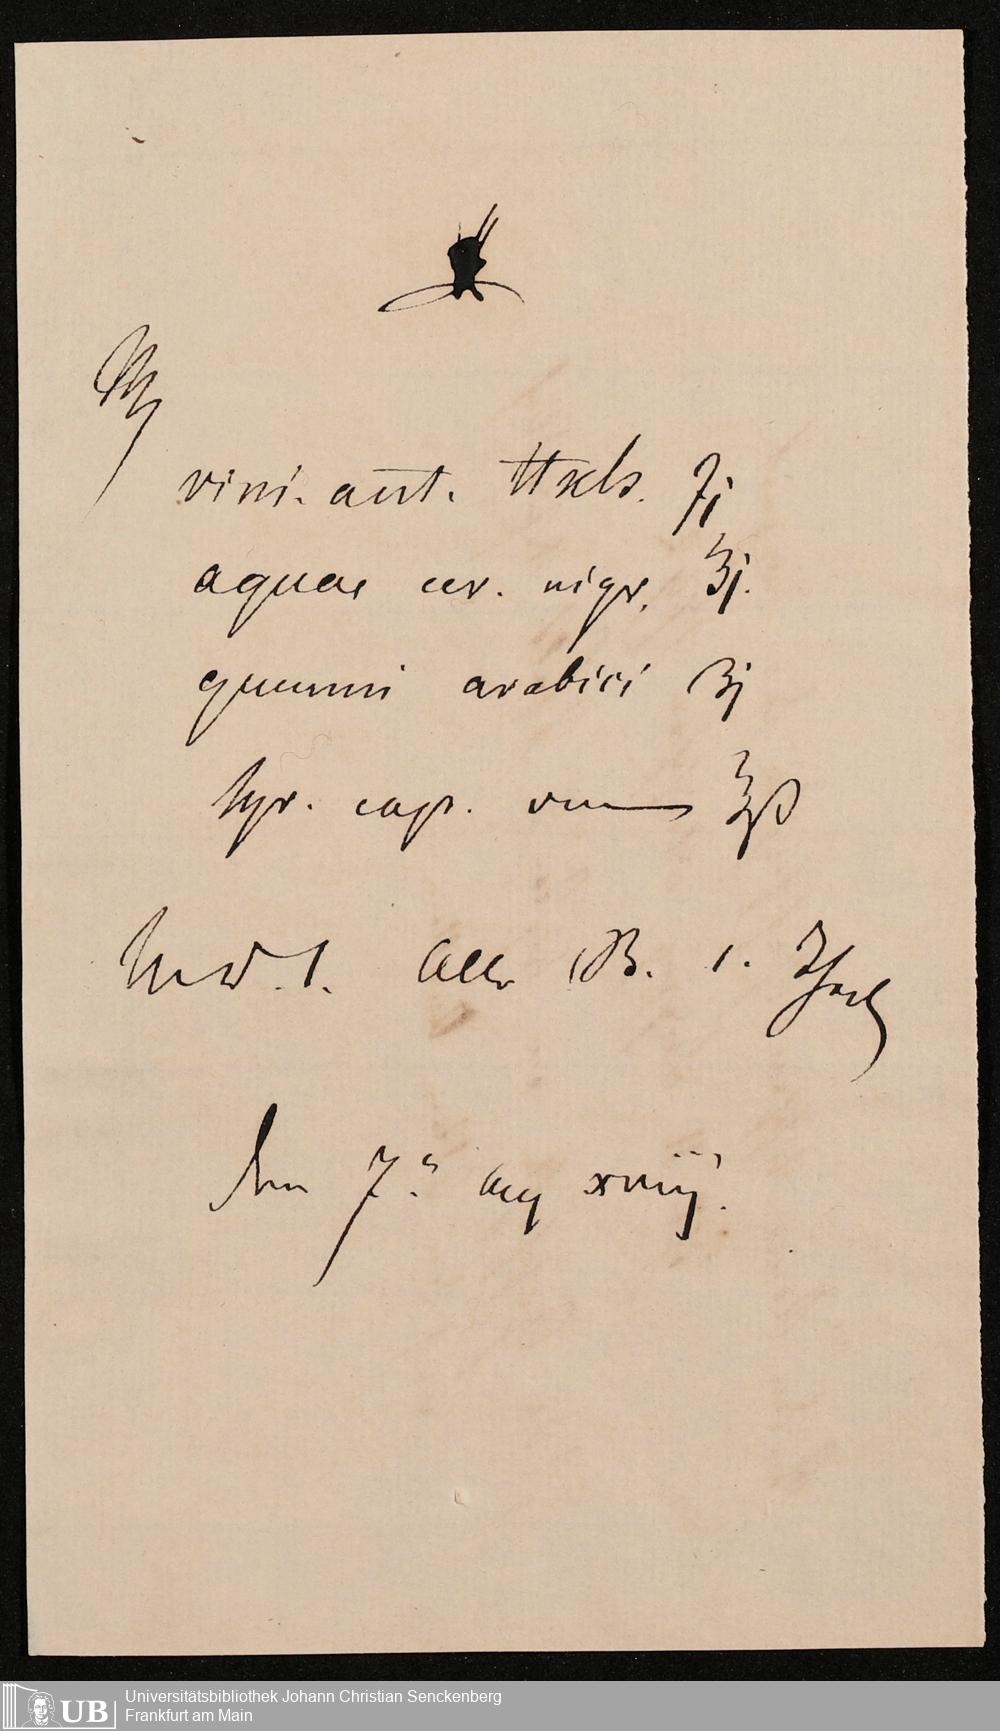 vini. ant. Hxls. ʒj
aquae cer. nigr. ʒj.
gummi arabici ʒj
syr. cap. ven ℥ß
M. D. S. Alle B. 1.
den 7. Aug xviiij.
UB Universitätsbibliothek Johann Christian Senckenberg
Frankfurt am Main